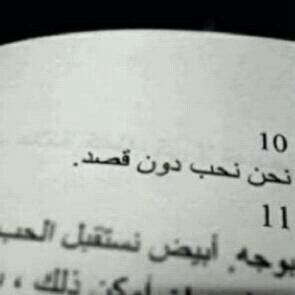 10
نحن نحب دون قصد.
11
بوجه أبيض نستقبل الحب
أمكن ذلك ،